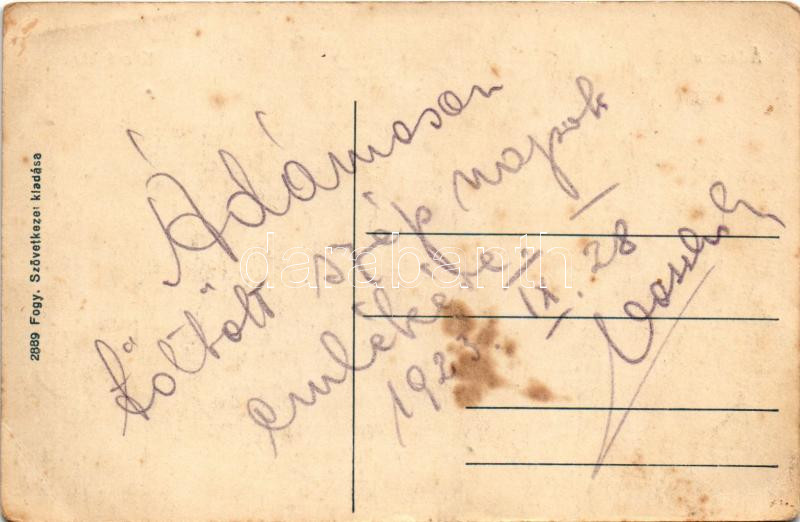 2889 Fogy. Szövetkezet kiadása
Ádámoson
töltött szép napok
emlékére
1923. IX. 28
darabanth